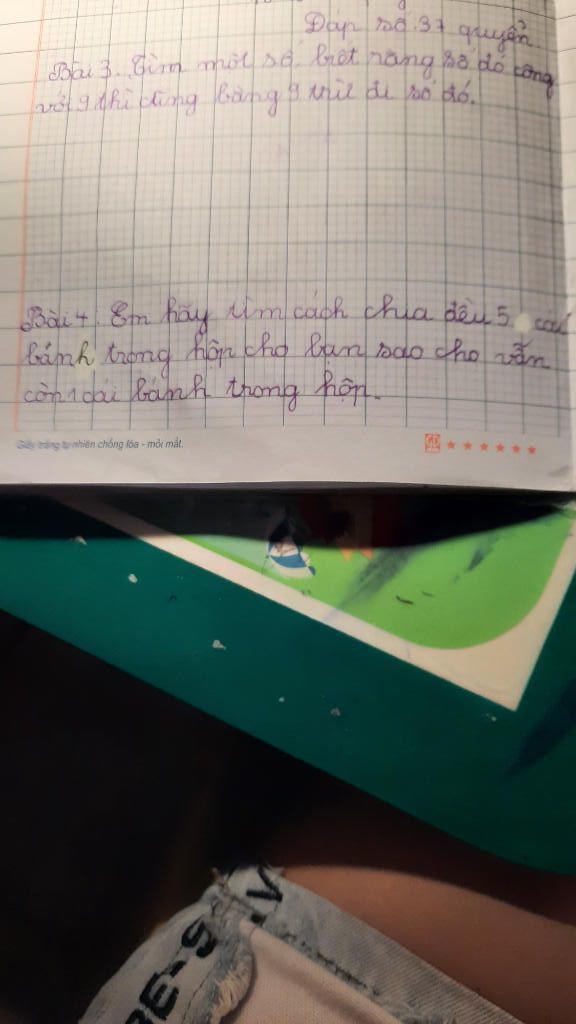 Đáp số 37 quyển
Bài 3. Tìm một số, biết rằng số đó cộng
với 9 thì cũng bằng 9 trừ đi số đó.
Bài 4. Em hãy tìm cách chia đều 5 cái
bánh trong hộp cho bạn sao cho vẫn
còn 1 cái bánh trong hộp.
Giấy trắng tự nhiên chống lóa - mỏi mắt.